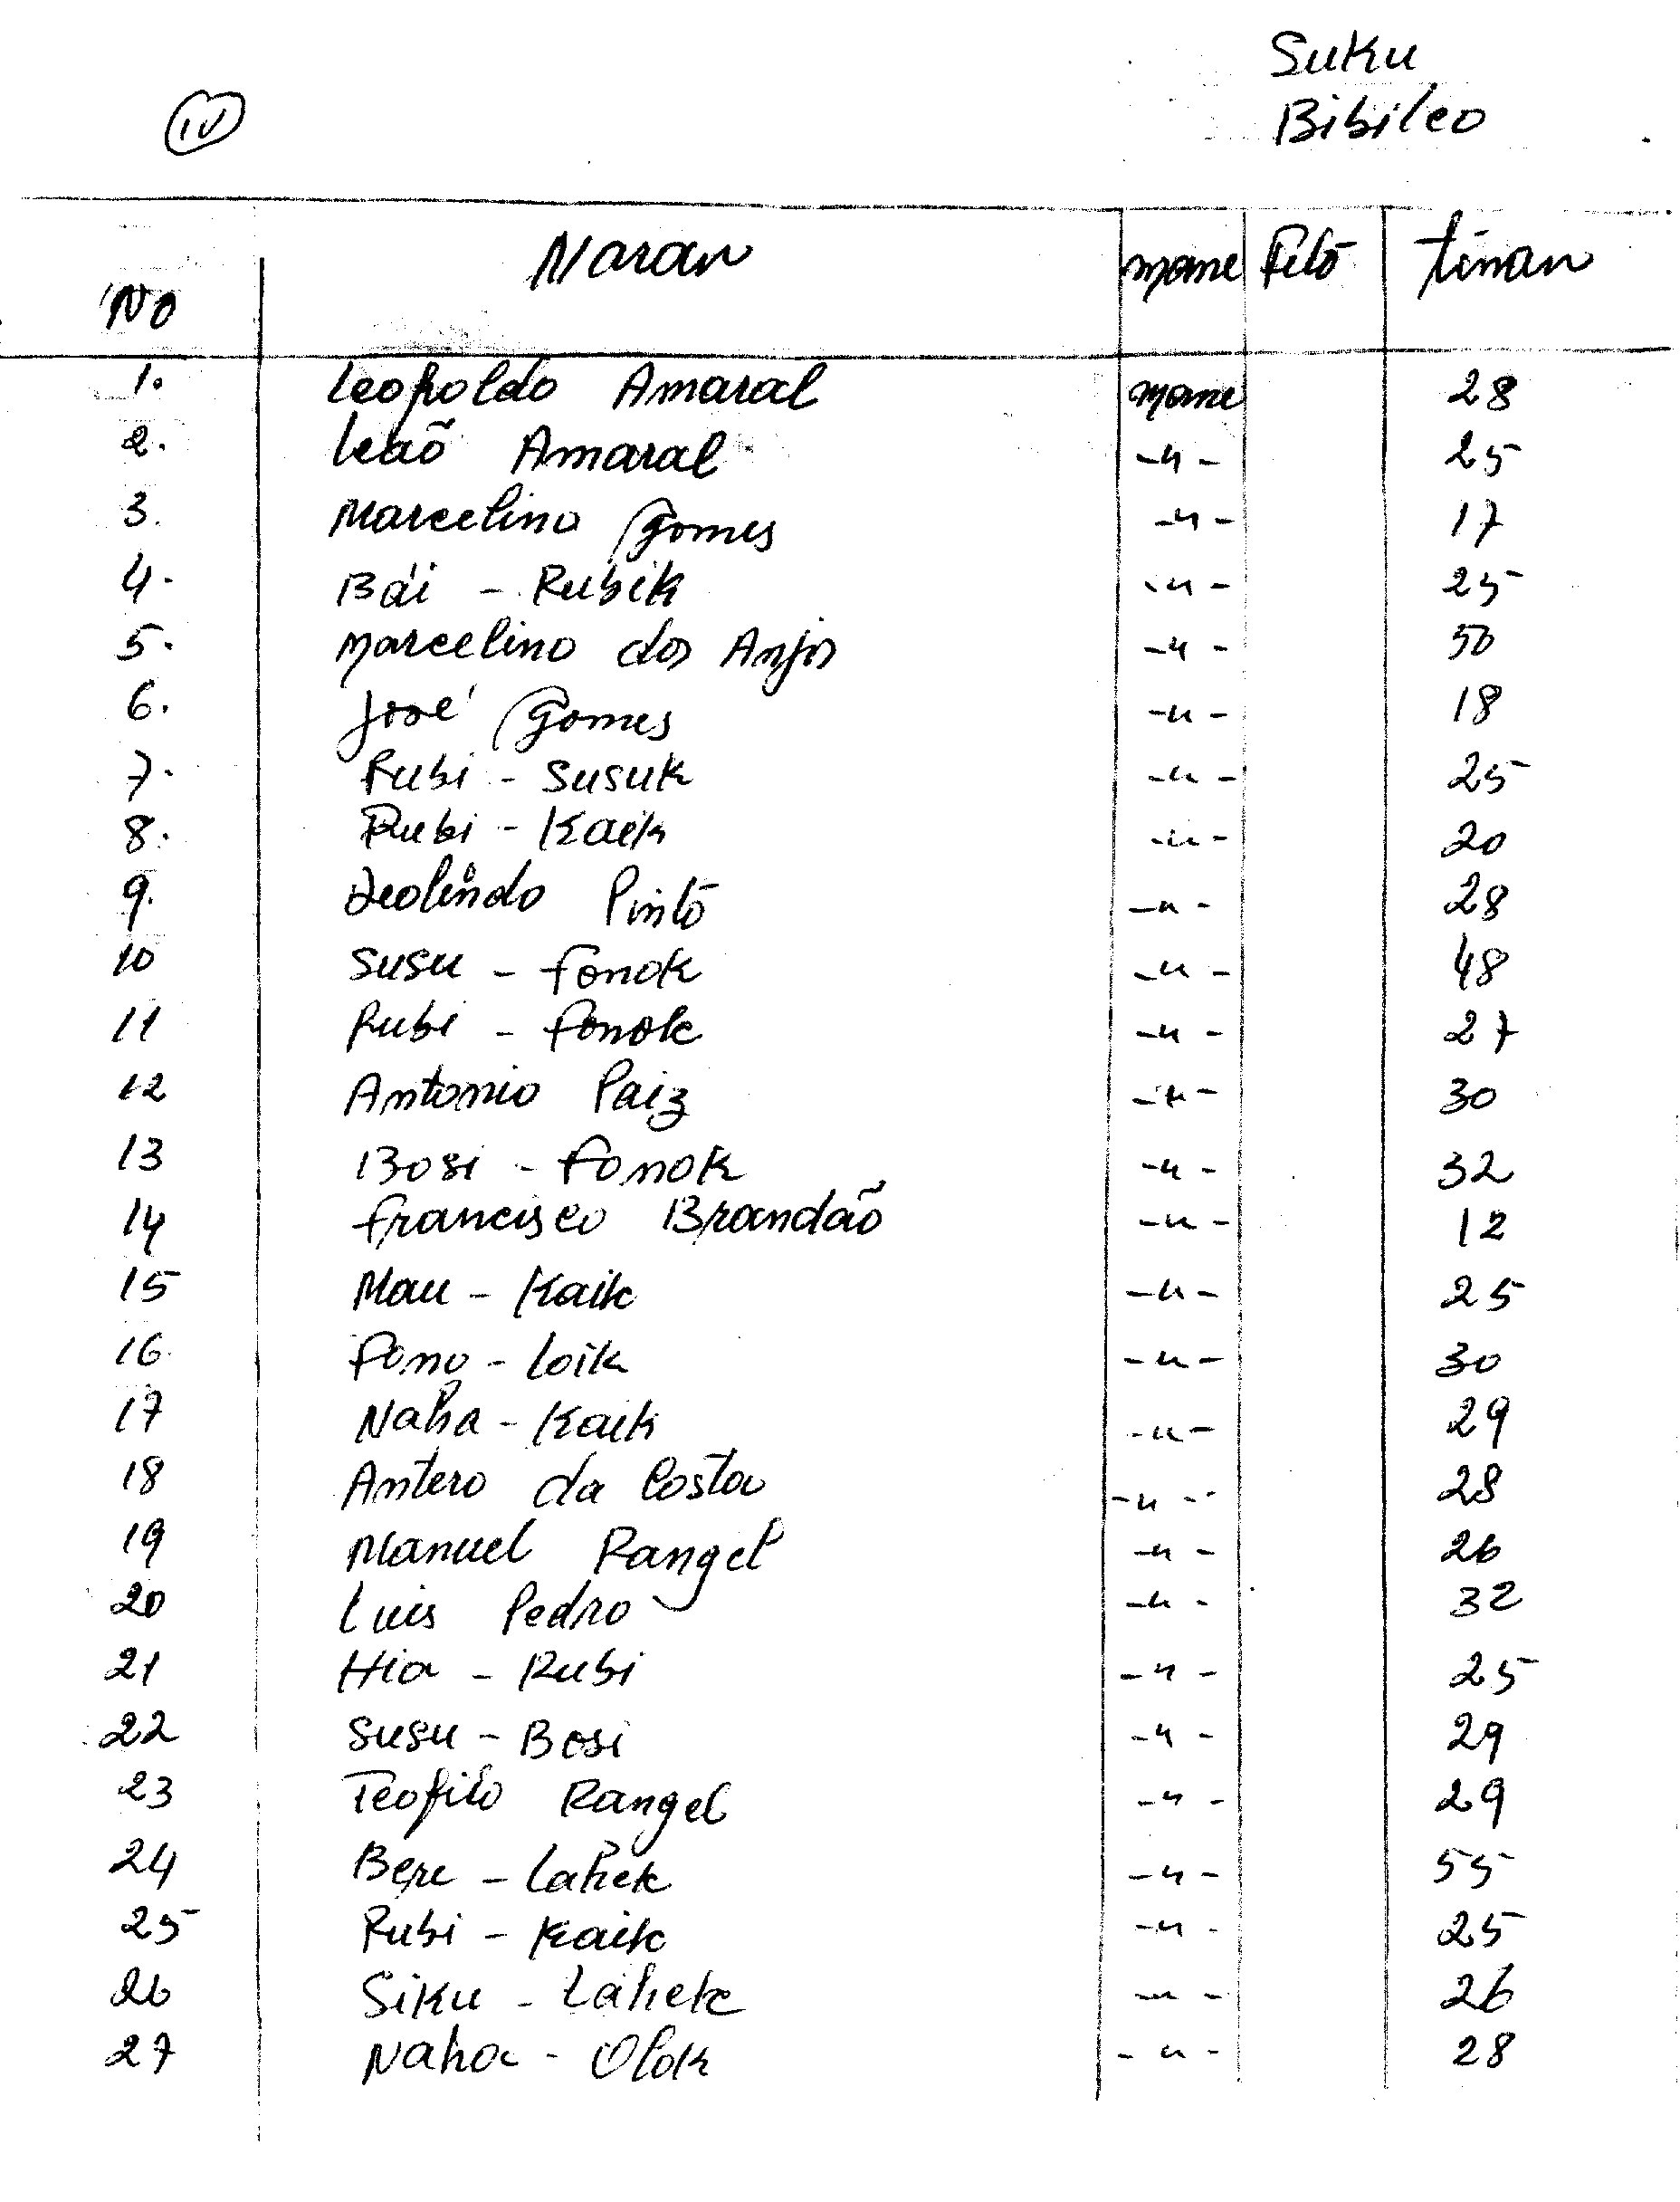 Suku
Bibileo
IV
No Naran mane Feto tinan
1. Leopoldo Amaral mane 28
2. Leão Amaral -"- 25
3. Marcelino Gomes -"- 17
4. Bai - Rubik -"- 25
5. Marcelino dos Anjos -"- 50
6. José Gomes -"- 18
7. Rubi - Susuk -"- 25
8. Rubi - Kaik -"- 20
9. Deolindo Pinto -"- 28
10 Susu - Fonok -"- 48
11 Rubi - Fonok -"- 27
12 Antonio Paiz -"- 30
13 Bosi - Fonok -"- 32
14 Francisco Brandão -"- 12
15 Mau - Kaik -"- 25
16 Fono - Loik -"- 30
17 Naha - Kaik -"- 29
18 Antero da Costa -"- 28
19 Manuel Rangel -"- 26
20 Luis Pedro -"- 32
21 Hia - Rubi -"- 25
22 Susu - Bosi -"- 29
23 Teofilo Rangel -"- 29
24 Bere - Lahek -"- 55
25 Rubi - Kaik -"- 25
26 Siku - Lahek -"- 26
27 Naha - Olok -"- 28